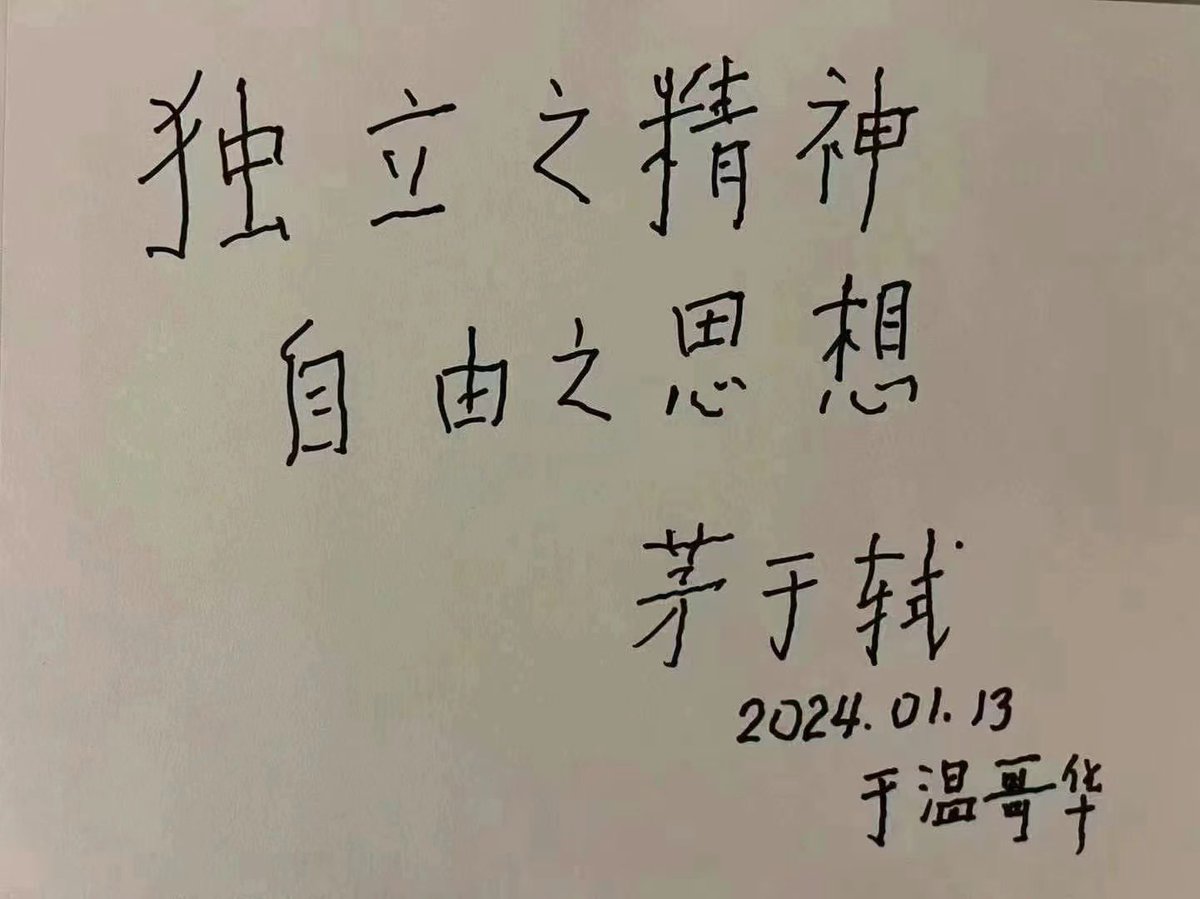 独立之精神
自由之思想
茅于轼
2024.01.13
于温哥华